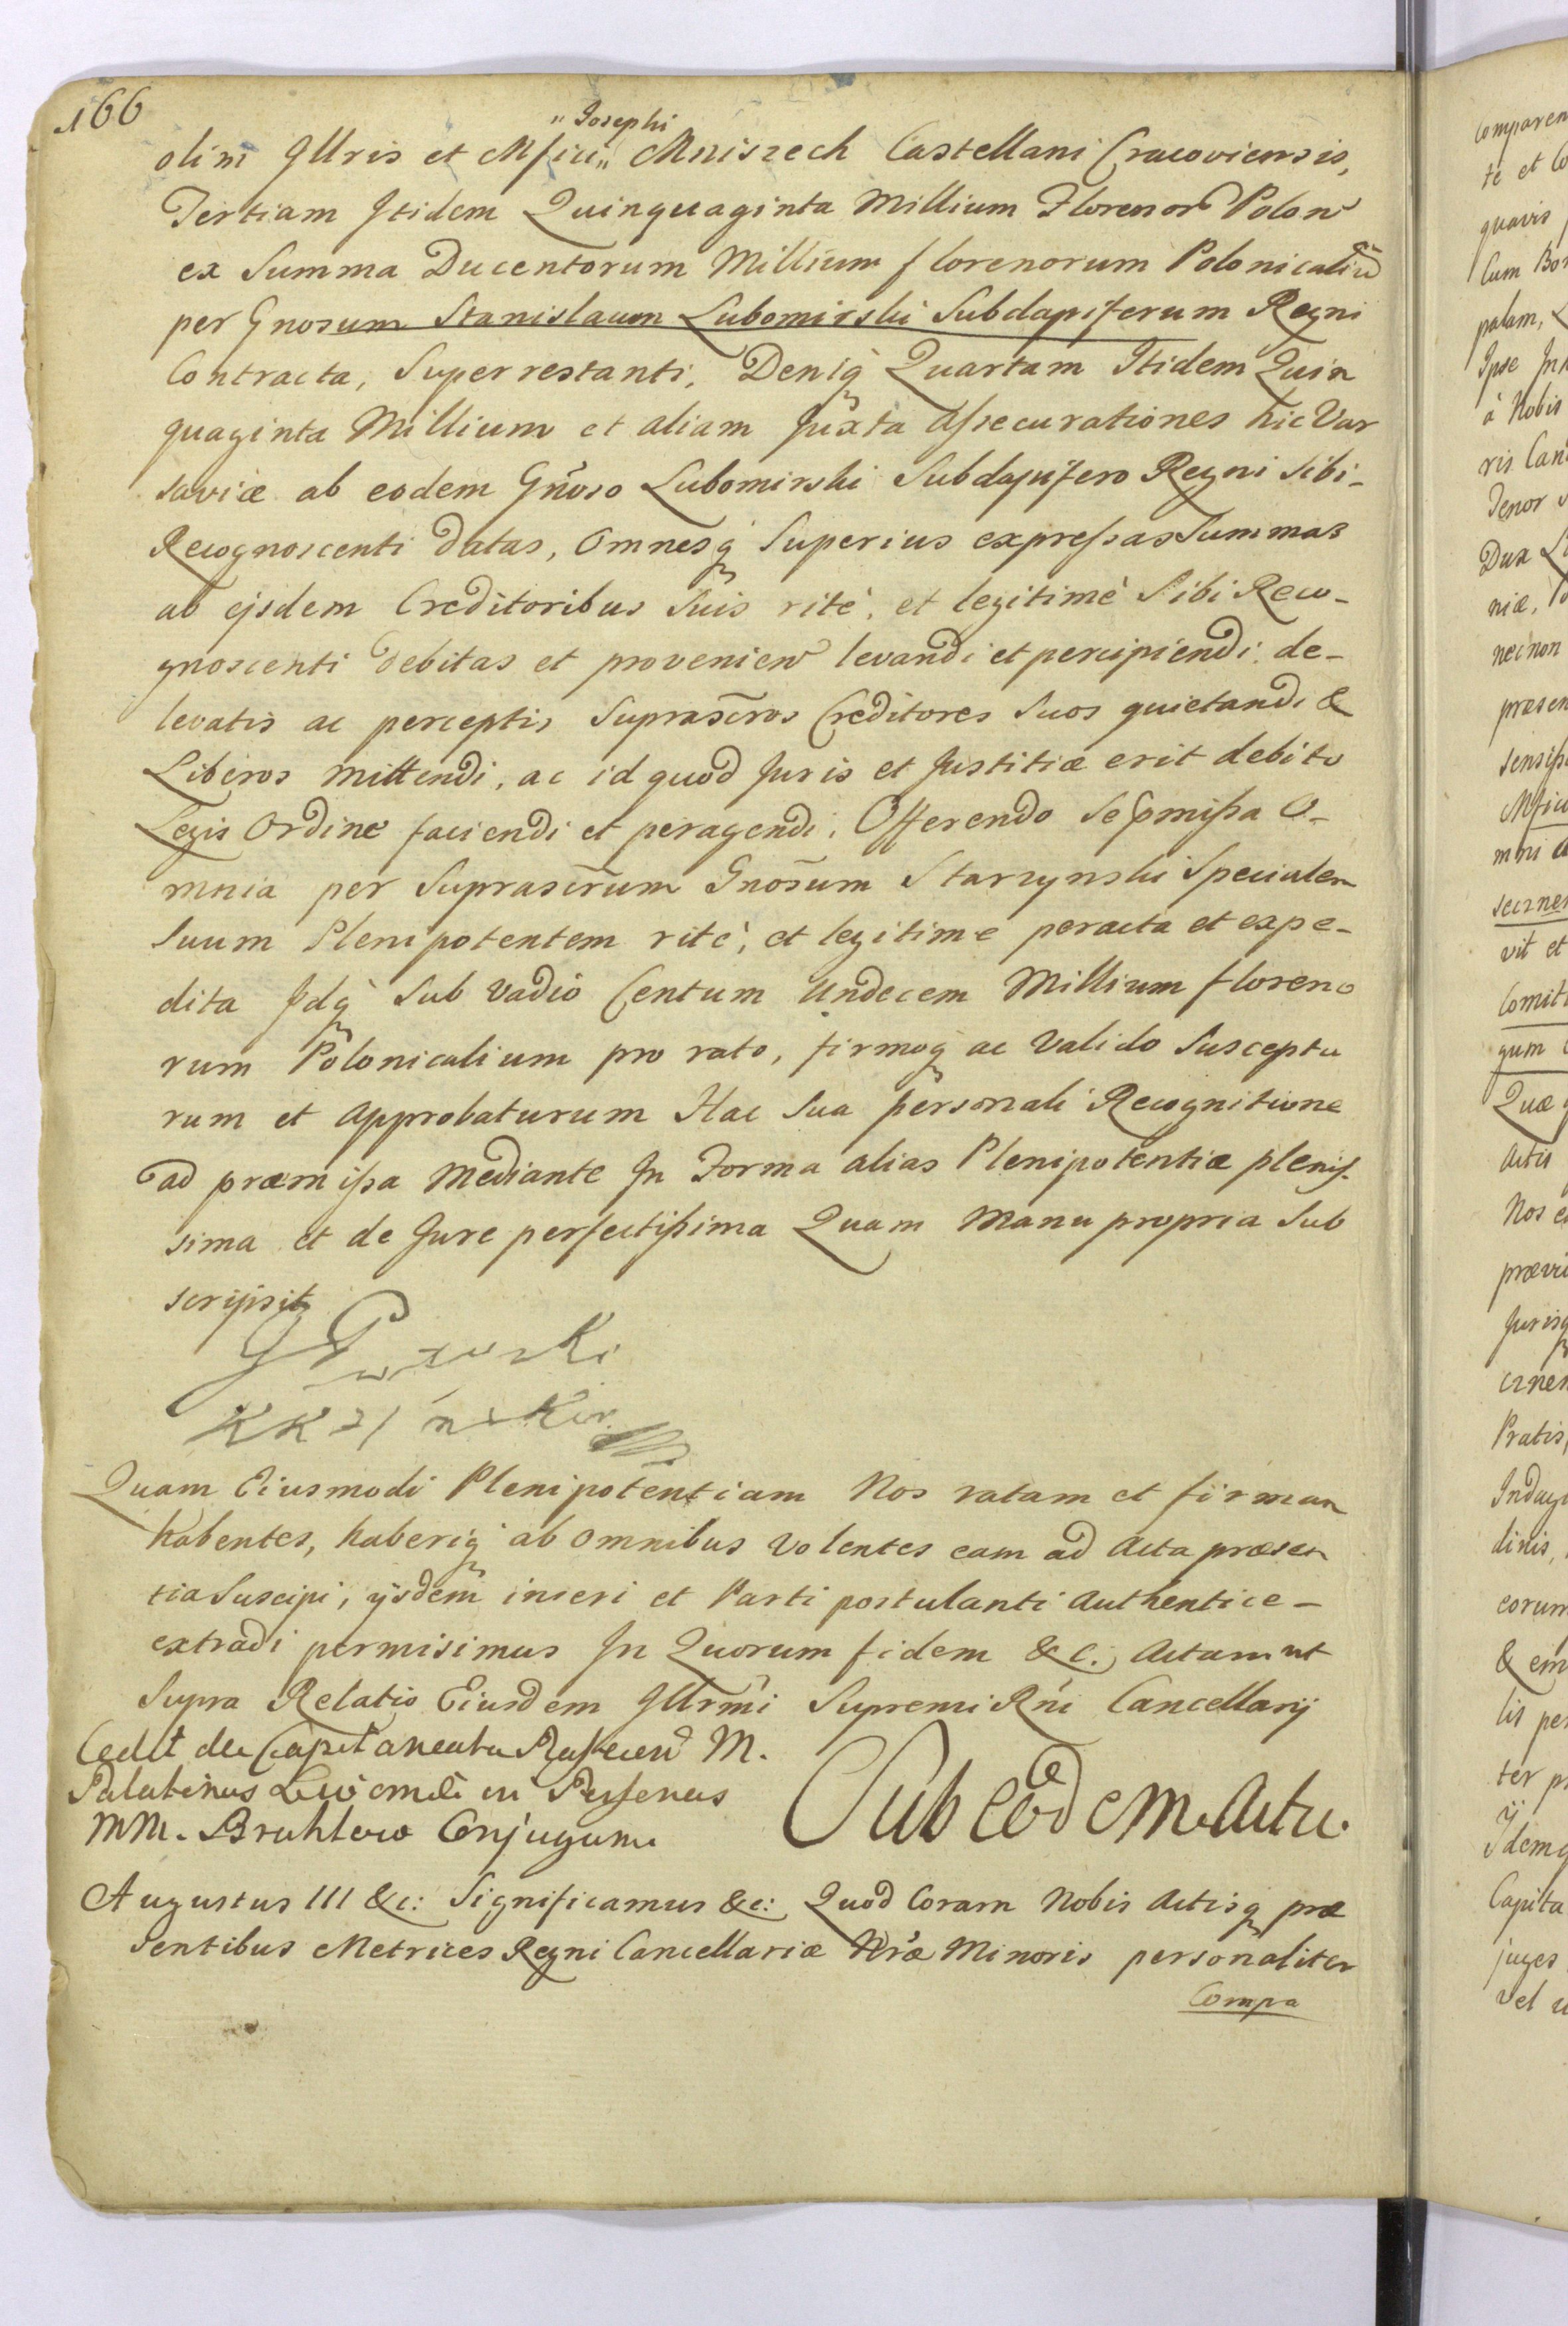 166
"Josephi
olim Jllris et Mfici" Mniszech Castellani Cracoviensis,
Tertiam Jtidem Quinquaginta Millium Florenor Polon
ex Summa Ducentorum Millium florenorum Polonicaliũ
per Gnosum Stanislaum Lubomirski Subdapiferum Regni
Contracta, Superrestanti, Deniq Quartam Itidem Quin
quaginta Millium et aliam Juxta Assecurationes hic Var
saviæ ab eodem Gñoso Lubomirski Subdapifero Regni Sibi-
Recognoscenti datas, Omnesq Superius expressas Summas
ab ejsdem Creditoribus Suis ritè, et legitimè Sibi Reco-
gnoscenti debitas et provenien levandi et percipiendi, de-
levatis ac perceptis Suprascr̃os Creditores Suos quietandi &
Liberos mittendi, ac id quod Juris et Justitiæ erit debito
Legis Ordine faciendi et peragendi, Offerendo Se pmissa O-
mnia per Suprascr̃um Gnõsum Starzynski Specialem
Suum Plenipotentem ritè, et legitime peracta et expe-
dita Jdq Sub Vadio Centum Undecem Millium floreno
rum Polonicalium pro rato, firmoq ac Valido Susceptu
rum et Approbaturum Hac Sua personali Recognitione
ad præmissa Mediante Jn Forma alias Plenipotentiæ plenis-
sima et de Jure perfectissima Quam Manu propria Sub
scripsit
Quam Eiusmodi Plenipotentiam Nos ratam et firmam
habentes, haberiq ab omnibus Volentes eam ad Acta præsen
tia Suscipi, ijsdem inseri et Parti postulanti Authentice-
extradi permisimus Jn Quorum fidem &c. Actum ut
Supra Relatio Eiusdem Jllrmi Supremi Rñi Cancellarij
Palatinus
MM. Bruhlow Conjugum
Sub eodem Actu.
Augustus III &c: Significamus &c: Quod Coram Nobis Actisq præ
sentibus Metrices Regni Cancellariæ Nr̃æ Minoris personaliter
Compa